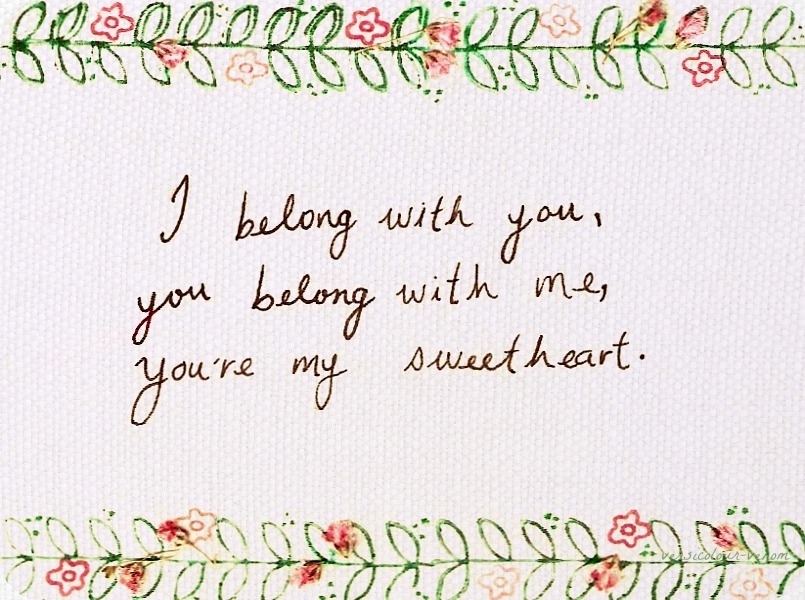 I belong with you,
you belong with me,
you're my sweetheart.
versicolour-venom